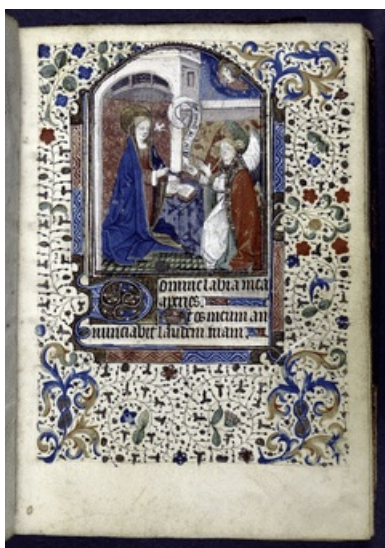 Domine labia mea
aperies,
Et os meum an
nunciabit laudem tuam,